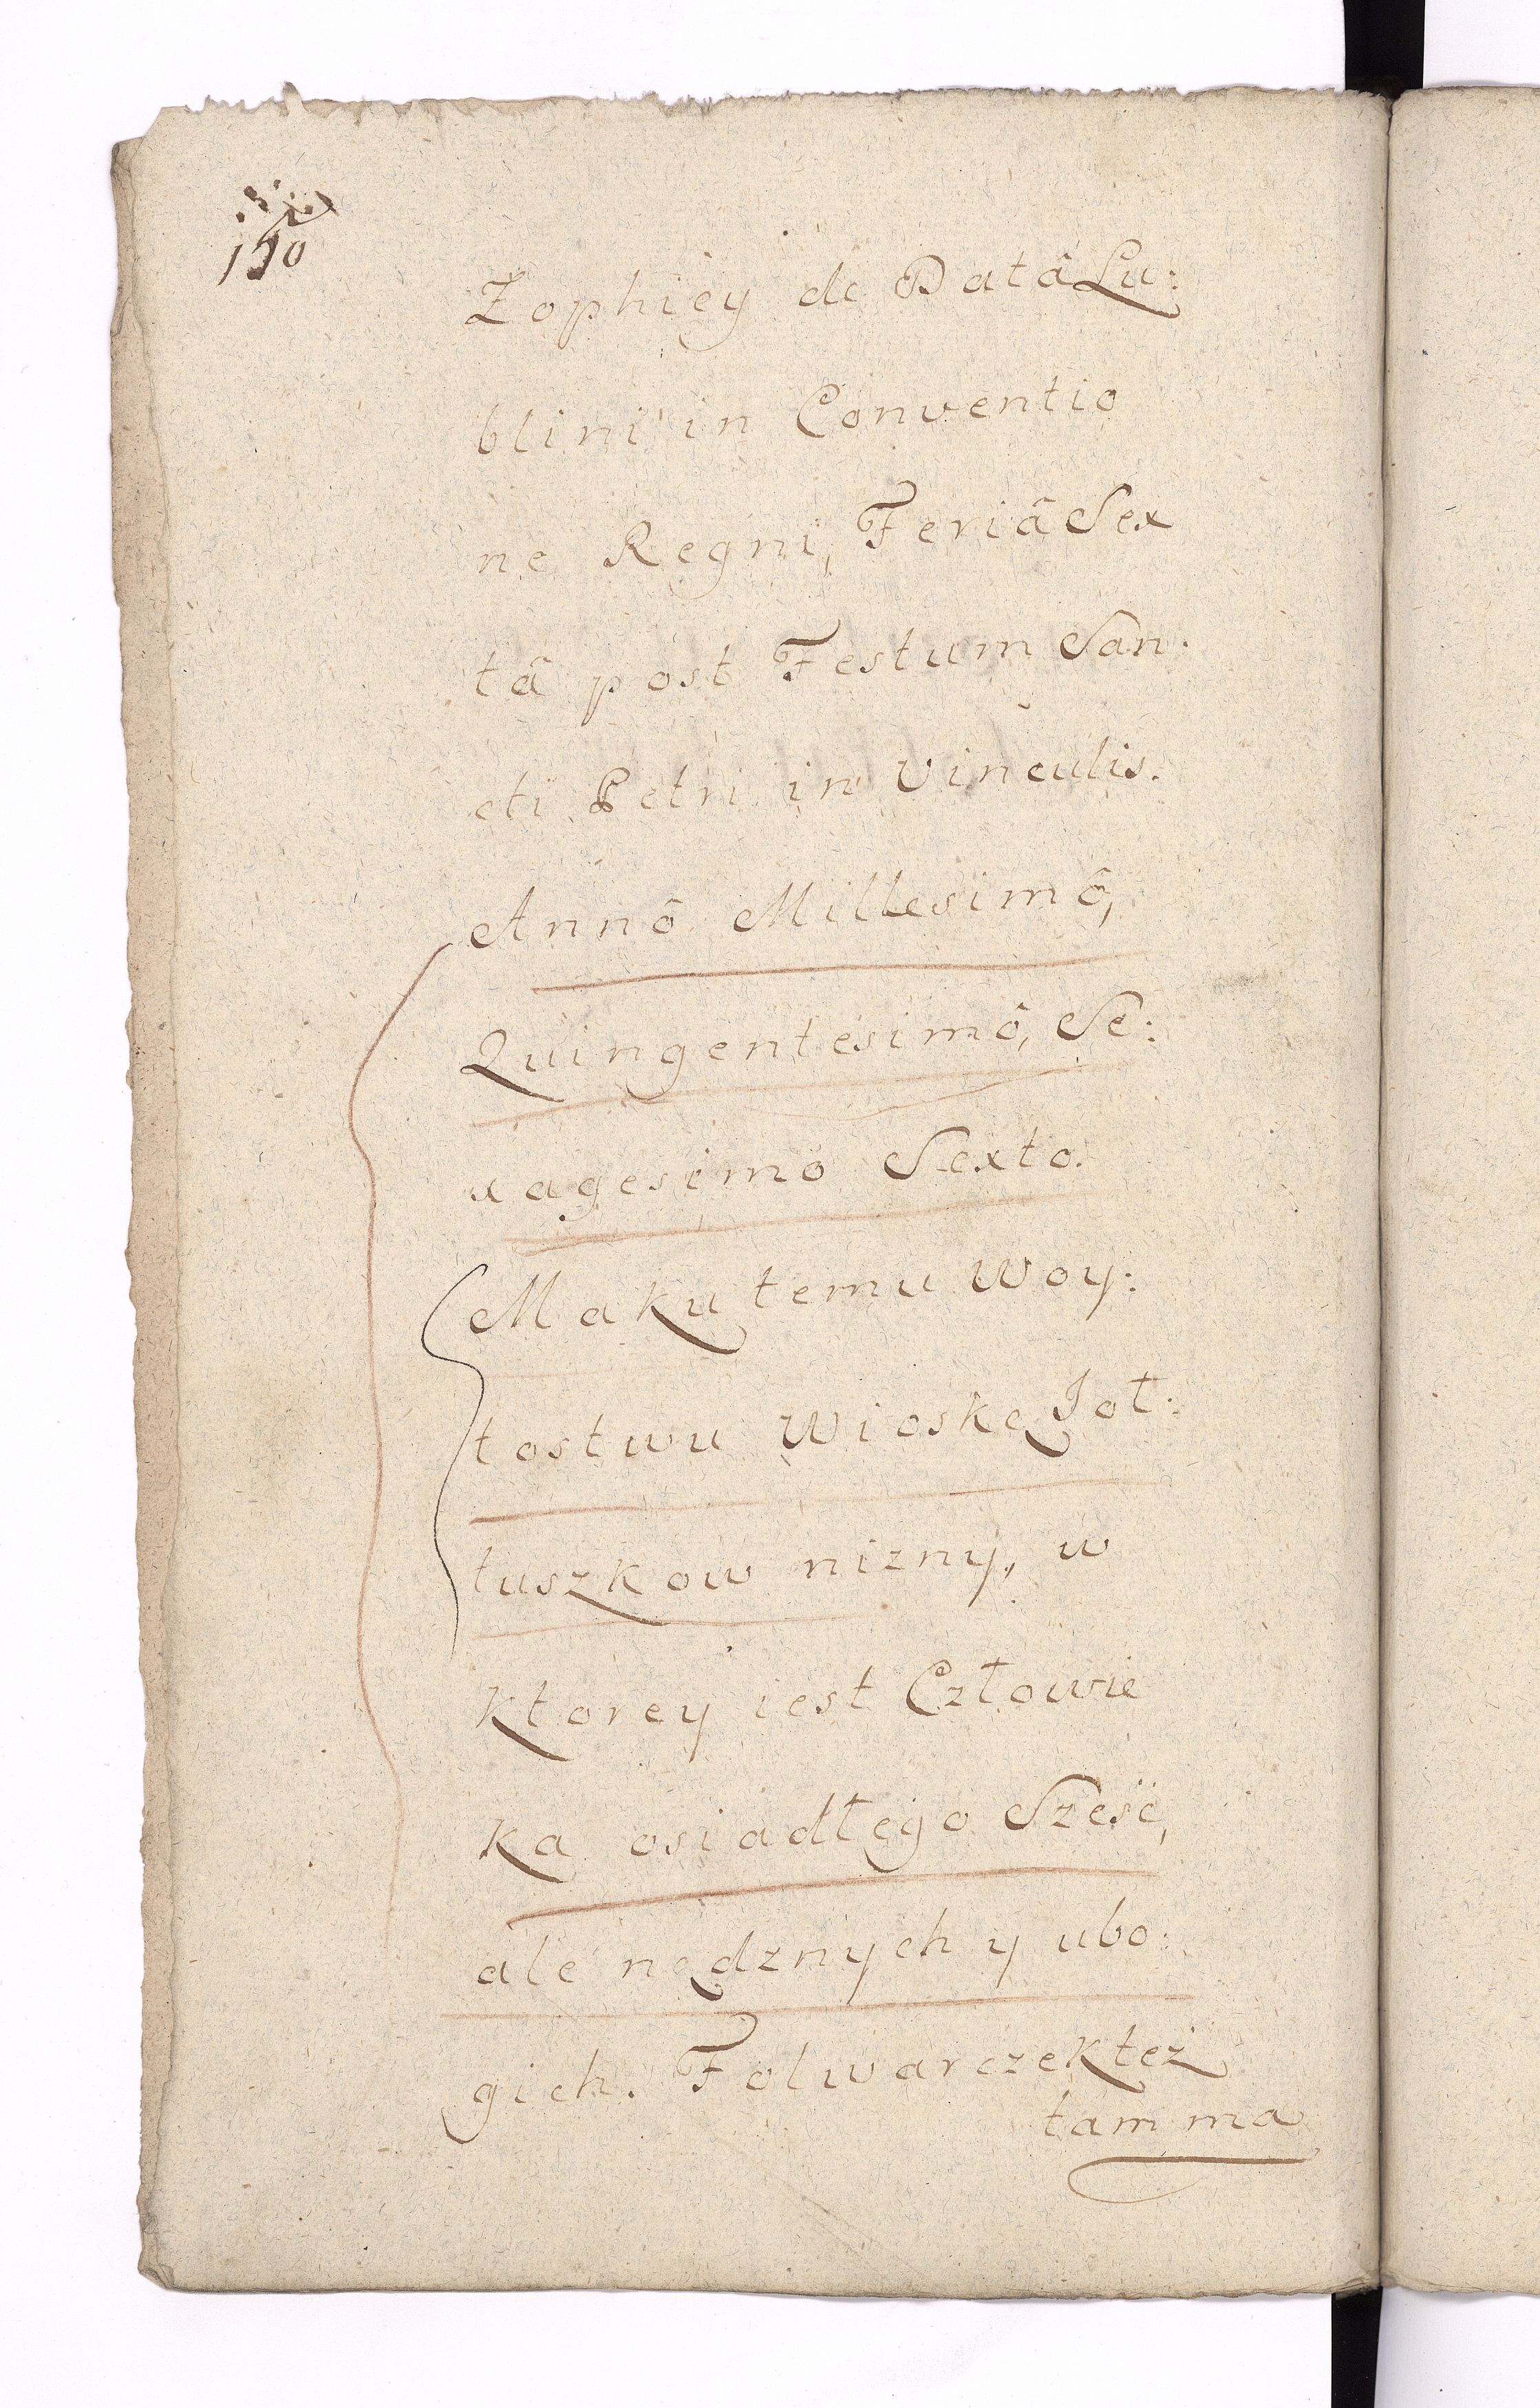 Zophiey de Datâ Lu:
blini in Conventio
ne Regni, Feriâ Sex
tâ post Festum San.
cti Petri in Vinculis.
Annô Millesimô,
Quingentesimô, Se:
xagesimo Sexto.
Ma ku temu Woy:
tostwu Wioskę Joł:
tuszkow nizny, w
ktorey iest Człowie
ka osiadłego Szesć,
ale nędznych y ubo:
gich. Folwarczek też
tam ma